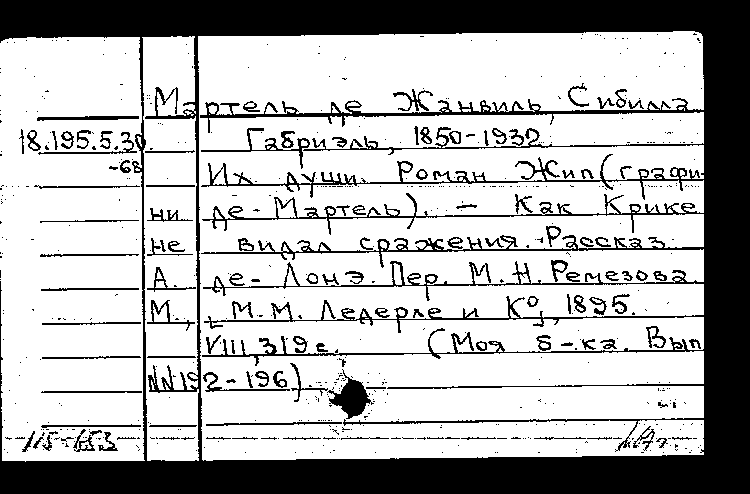 Мартель де Жанвиль, Сибилла
18.195.5.30. Габриэль, 1850-1932.
-68 Их души. Роман Жип (графи-
ни де-Мартель). - Как Крике
не видал сражения. Рассказ
А. де-Лонэ. Пер. М.Н. Ремезова.
М., [М.М. Ледерле и К°], 1895.
VIII, 319 с. (Моя б-ка. Вып
NN 192-196)
115-653